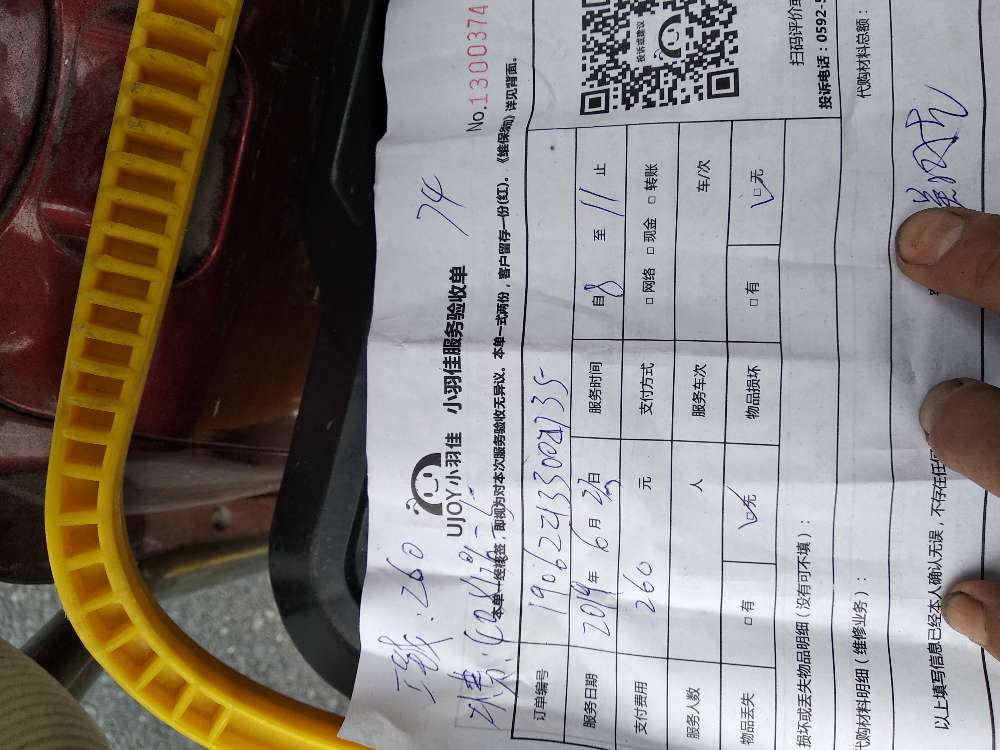 No.1300374
74
UJOY小羽佳 小羽佳服务验收单
本单一经核签，即视为对本次服务验收无异议。本单一式两份，客户留存一份(红)。《维保须知》详见背面。
订单编号
服务日期 2019年6月23日 服务时间 自8至11止
支付费用 260 元 支付方式 □网络 □现金 □转账
服务人数 人 服务车次 车/次
物品丢失 □有 ☑无 物品损坏 □有 ☑无
损坏或丢失物品明细（没有可不填）：
代购材料明细（维修业务）： 代购材料总额：
以上填写信息已经本人确认无误，不存在任何
投诉或建议
扫码评价或
投诉电话：0592-5